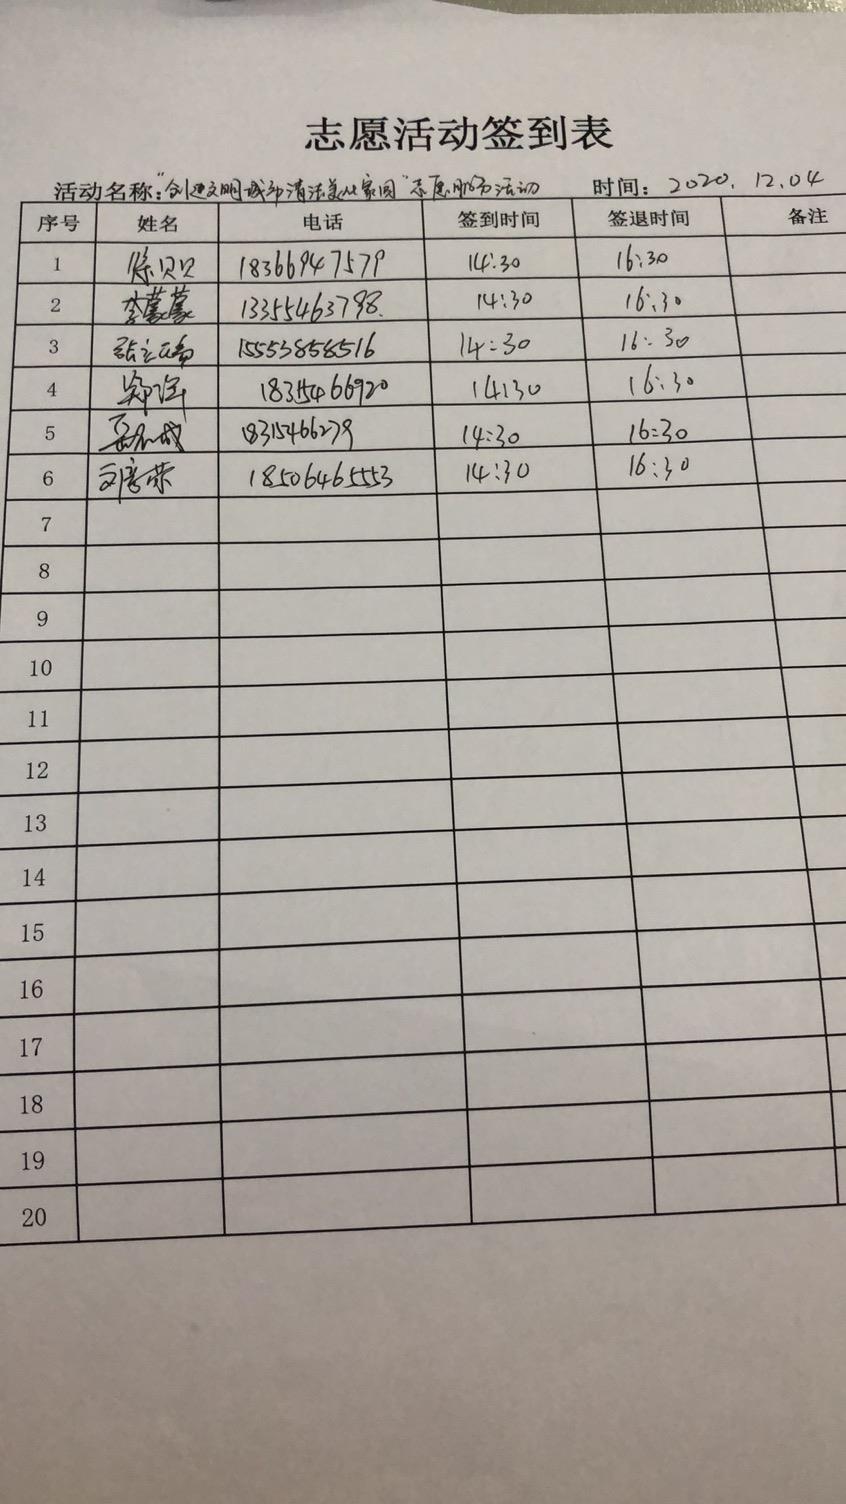 志愿活动签到表
活动名称："创建文明城市清洁美化家园"志愿服务活动 时间：2020.12.04
序号 姓名 电话 签到时间 签退时间 备注
1 徐贝贝 18366947579 14:30 16:30
2 李蒙蒙 13355463798. 14:30 16:30
3 15553858516 14:30 16:30
4 1835466920 14:30 16:30
5 18315466279 14:30 16:30
6 18506465553 14:30 16:30
7
8
9
10
11
12
13
14
15
16
17
18
19
20